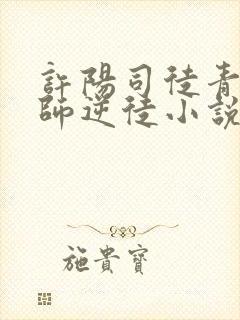 許陽司徒青
師逆徒小說
施貴寶